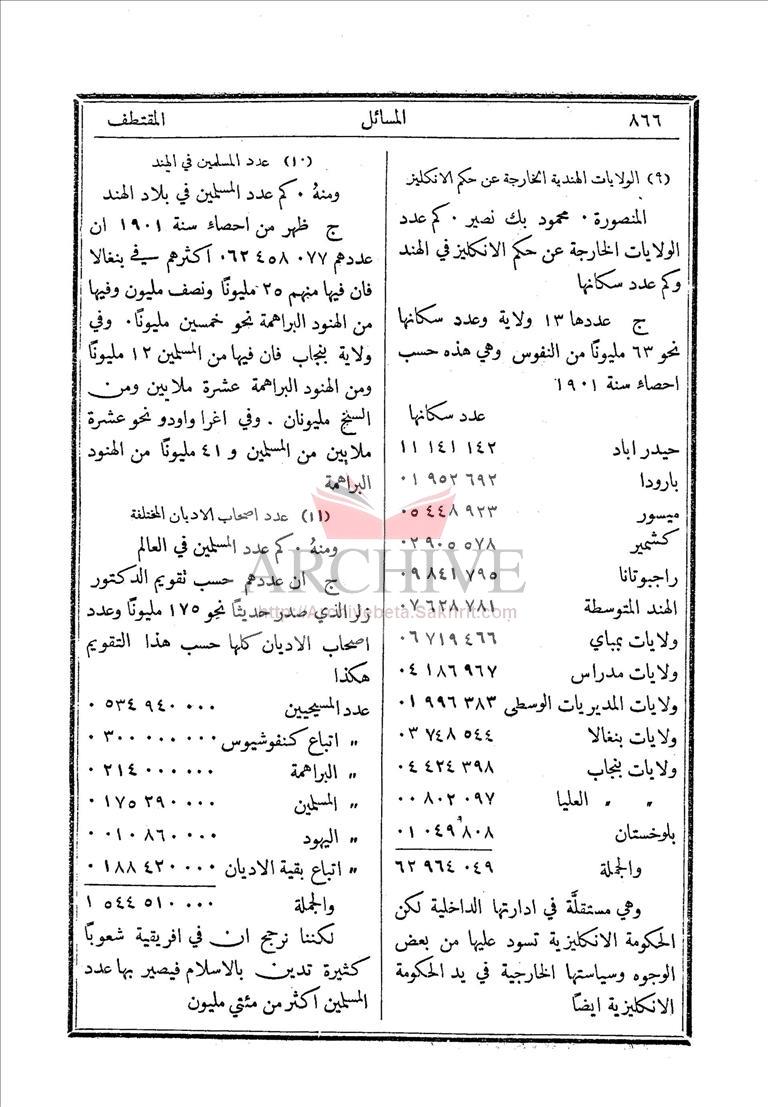 ٨٦٦
المسائل
المقتطف
(٩) الولايات الهندية الخارجة عن حكم الانكليز
المنصورة ٠ محمود بك نصير ٠ كم عدد
الولايات الخارجة عن حكم الانكليز في الهند
وكم عدد سكانها
ج عددها ١٣ ولاية وعدد سكانها
نحو ٦٣ مليونًا من النفوس وهي هذه حسب
احصاء سنة ١٩٠١
عدد سكانها
حيدر اباد ١١ ١٤١ ١٤٢
بارودا ٠١ ٩٥٢ ٦٩٢
ميسور ٠٥ ٤٤٨ ٩٢٣
كشمير ٠٢ ٩٠٥ ٥٧٨
راجبوتانا ٠٩ ٨٤١ ٧٩٥
الهند المتوسطة ٠٧ ٦٢٨ ٧٨١
ولايات بمباي ٠٦ ٧١٩ ٤٦٦
ولايات مدراس ٠٤ ١٨٦ ٩٦٧
ولايات المديريات الوسطى ٠١ ٩٩٦ ٣٨٣
ولايات بنغالا ٠٣ ٧٤٨ ٥٤٤
ولايات بنجاب ٠٤ ٤٢٤ ٣٩٨
" " العليا ٠٠ ٨٠٢ ٠٩٧
بلوخستان ٠١ ٠٤٩ ٨٠٨
والجملة ٦٢ ٩٦٤ ٠٤٩
وهي مستقلَّة في ادارتها الداخلية لكن
الحكومة الانكليزية تسود عليها من بعض
الوجوه وسياستها الخارجية في يد الحكومة
الانكليزية ايضًا
(١٠) عدد المسلمين في الهند
ومنهُ ٠ كم عدد المسلمين في بلاد الهند
ج ظهر من احصاء سنة ١٩٠١ ان
عددهم ٠٧٧ ٤٥٨ ٠٦٢ اكثرهم في بنغالا
فان فيها منهم ٢٥ مليونًا ونصف مليون وفيها
من الهنود البراهمة نحو خمسين مليونًا٠ وفي
ولاية بنجاب فان فيها من المسلمين ١٢ مليونًا
ومن الهنود البراهمة عشرة ملايين ومن
السنخ مليونان . وفي اغرا واودو نحو عشرة
ملايين من المسلمين و ٤١ مليونًا من الهنود
البراهمة
(١١) عدد اصحاب الاديان المختلفة
ومنهُ ٠ كم عدد المسلمين في العالم
ج ان عددهم حسب تقويم الدكتور
زلر الذي صدر حديثًا نحو ١٧٥ مليونًا وعدد
اصحاب الاديان كلها حسب هذا التقويم
هكذا
عدد المسيحيين ٠ ٥٣٤ ٩٤٠ ٠٠٠
" اتباع كنفوشيوس ٠ ٣٠٠ ٠٠٠ ٠٠٠
" البراهمة ٠ ٢١٤ ٠٠٠ ٠٠٠
" المسلمين ٠ ١٧٥ ٢٩٠ ٠٠٠
" اليهود ٠ ٠١٠ ٨٦٠ ٠٠٠
" اتباع بقية الاديان ٠ ١٨٨ ٤٢٠ ٠٠٠
والجملة ١ ٥٤٤ ٥١٠ ٠٠٠
لكننا نرجح ان في افريقية شعوبًا
كثيرة تدين بالاسلام فيصير بها عدد
المسلمين اكثر من مئتي مليون
ARCHIVE
http://Archivebeta.Sakhrit.com